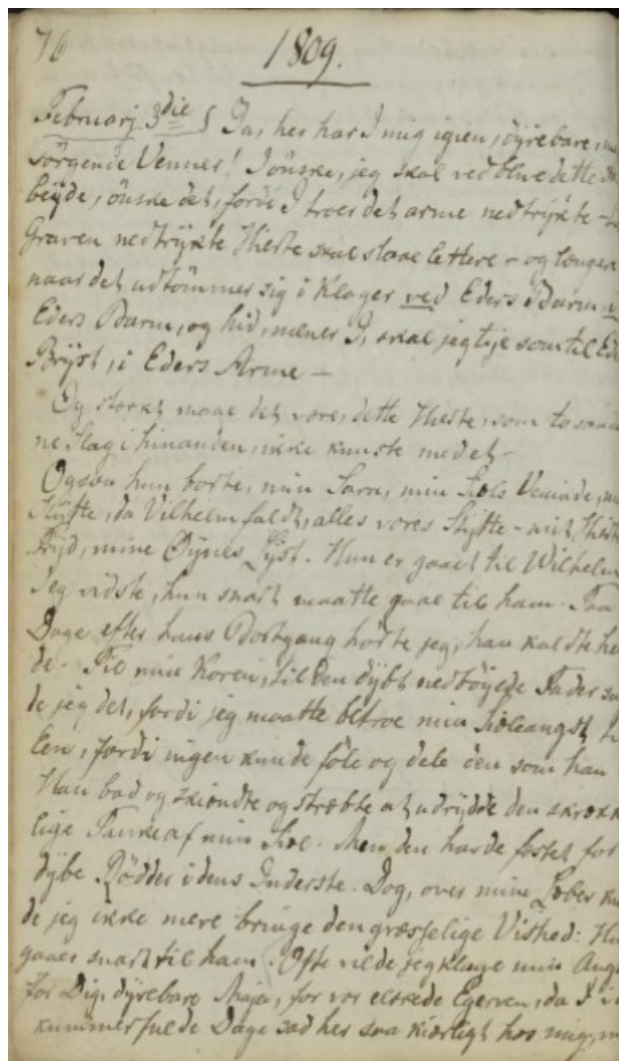 76
1809.
Februarj 3die § Ja, her har I mig igien, dÿrebare,
sörgende Venner! I önske, jeg skal vedblive dette
beÿde, önske det, fordi I troer det arme nedtrÿkte -
Graven nedtrÿkte Hierte skal slaae lettere - og længere
naar det udtömmer sig i Klager ved Eders Barm,
Eders Barm, og hid, mener I, skal jeg tÿe som til
Brÿst, i Eders Arme -
Og stærkt maae det være, dette Hierte, som to
ne Slag i hinanden, ikke knuste med et -
Ogsaa hun borte, min Sara, min Siels Veninde,
Stÿtte, da Vilhelm faldt, alles vores Stÿtte - mit
Frÿd, mine Öÿnes Lÿst. Hun er gaaet til Wilhelm
Jeg vidste, hun snart maatte gaae til ham. Faa
Dage efter hans Bortgang hörte jeg, han kaldte
de. Til min Koren, til den dÿbt nedböÿede Fader
de jeg det, fordi jeg maatte betroe min Sieleangst
Een, fordi ingen kunde föle og dele den som han
Han bad og skiendte og stræbte at udrÿdde den skræk
lige Tanke af min Siel. Men den havde fæstet for
dÿbe Rödder i dens Inderste. Dog, over mine Læber
de jeg ikke mere bringe den græsselige Vished:
gaaer snart til ham. Ofte vilde jeg klage min
for Dig, dÿrebare Maja, for vor elskede Egerven, da I
kummerfulde Dage sad her saa kierligt hos mig,